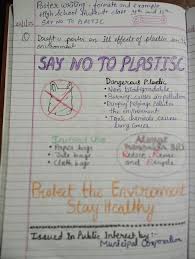 Poster writing - format and example
High School Students class
SAY NO TO PLASTIC
Draft a poster on Ill effects of plastic on the
environment
SAY NO TO PLASTISC
Dangerous Plastic
• Non Biodegradable
• Burning causes air pollution
• Dumping Polybags pollutes
the environment
• Toxic chemicals causes
lung cancer
Instead Use
• Paper bags
• Jute bags
• Cloth bags
Always
Reduce, Reuse
and Recycle
Protect the Enviroment
Stay Healthy
Issued In Public Interest by:-
Municipal Corporation